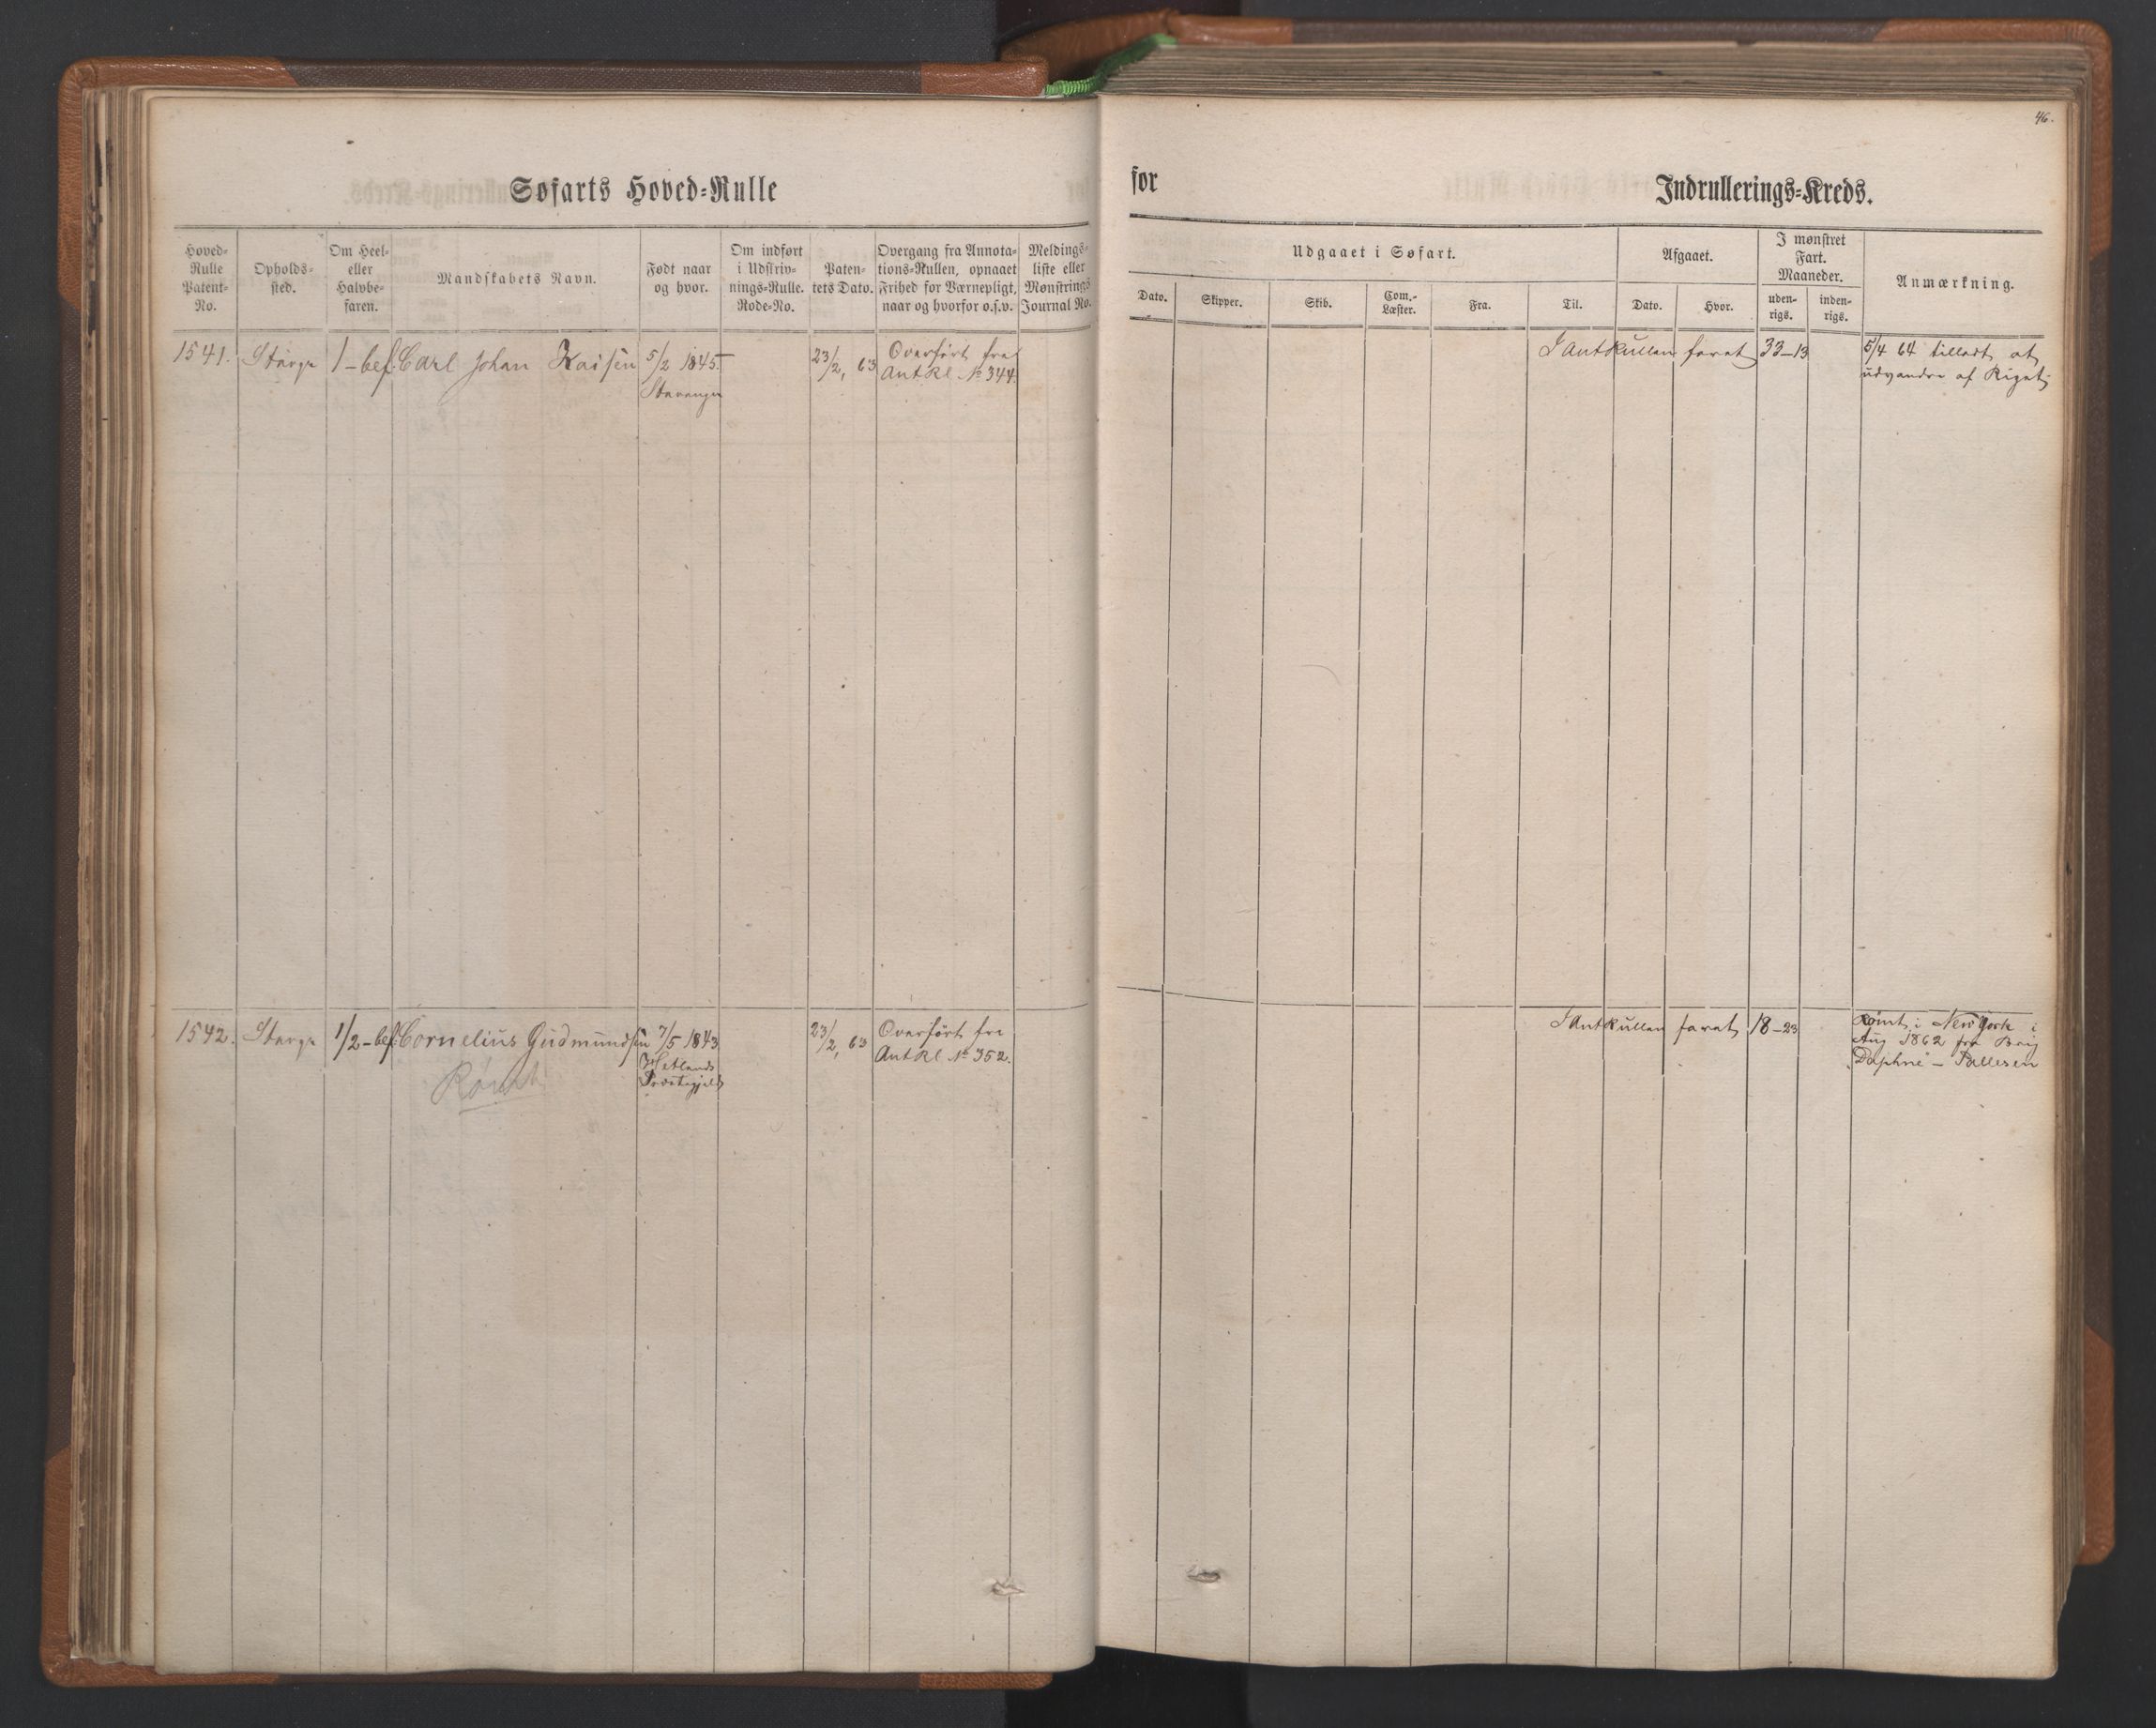 46.
Søfarts Hoved-Rulle
for
Indrullerings-Kreds.
Hoved-
Rulle
Patent-
No.
Opholds-
sted.
Om Heel-
eller
Halvbe-
faren.
Mandskabets Navn.
Født naar
og hvor.
Om indført
i Udskriv-
nings-Rulle.
Rode-No.
Paten-
tets Dato.
Overgang fra Annota-
tions-Rullen, opnaaet
Frihed for Værnepligt,
naar og hvorfor o.s.v.
Meldings-
liste eller
Mønstrings
Journal No.
Udgaaet i Søfart.
Dato.
Skipper.
Skib.
Com.-
Læster.
Fra.
Til.
Afgaaet.
Dato.
Hvor.
I mønstret
Fart.
Maaneder.
uden-
rigs.
inden-
rigs.
Anmærkning.
1541. Stavgr 1-bef. Carl Johan Kaisen 5/2 1845. 23/2, 63 Overført fra
Stavanger
Ant Rl No 344.
I Ant Rullen faret 33-13 5/4 64 tilladt at
udvandre af Riget
1542. Stavgr 1/2-bef. Cornelius Gudmundsen 7/5 1843 23/2, 63 Overført fra
Hetlands
Præstegjeld
Ant Rl No 352.
Rømt
I Ant Rullen faret 18-23 Rømt i New York i
Aug 1862 fra Brig
"Daphne" - Pallesen